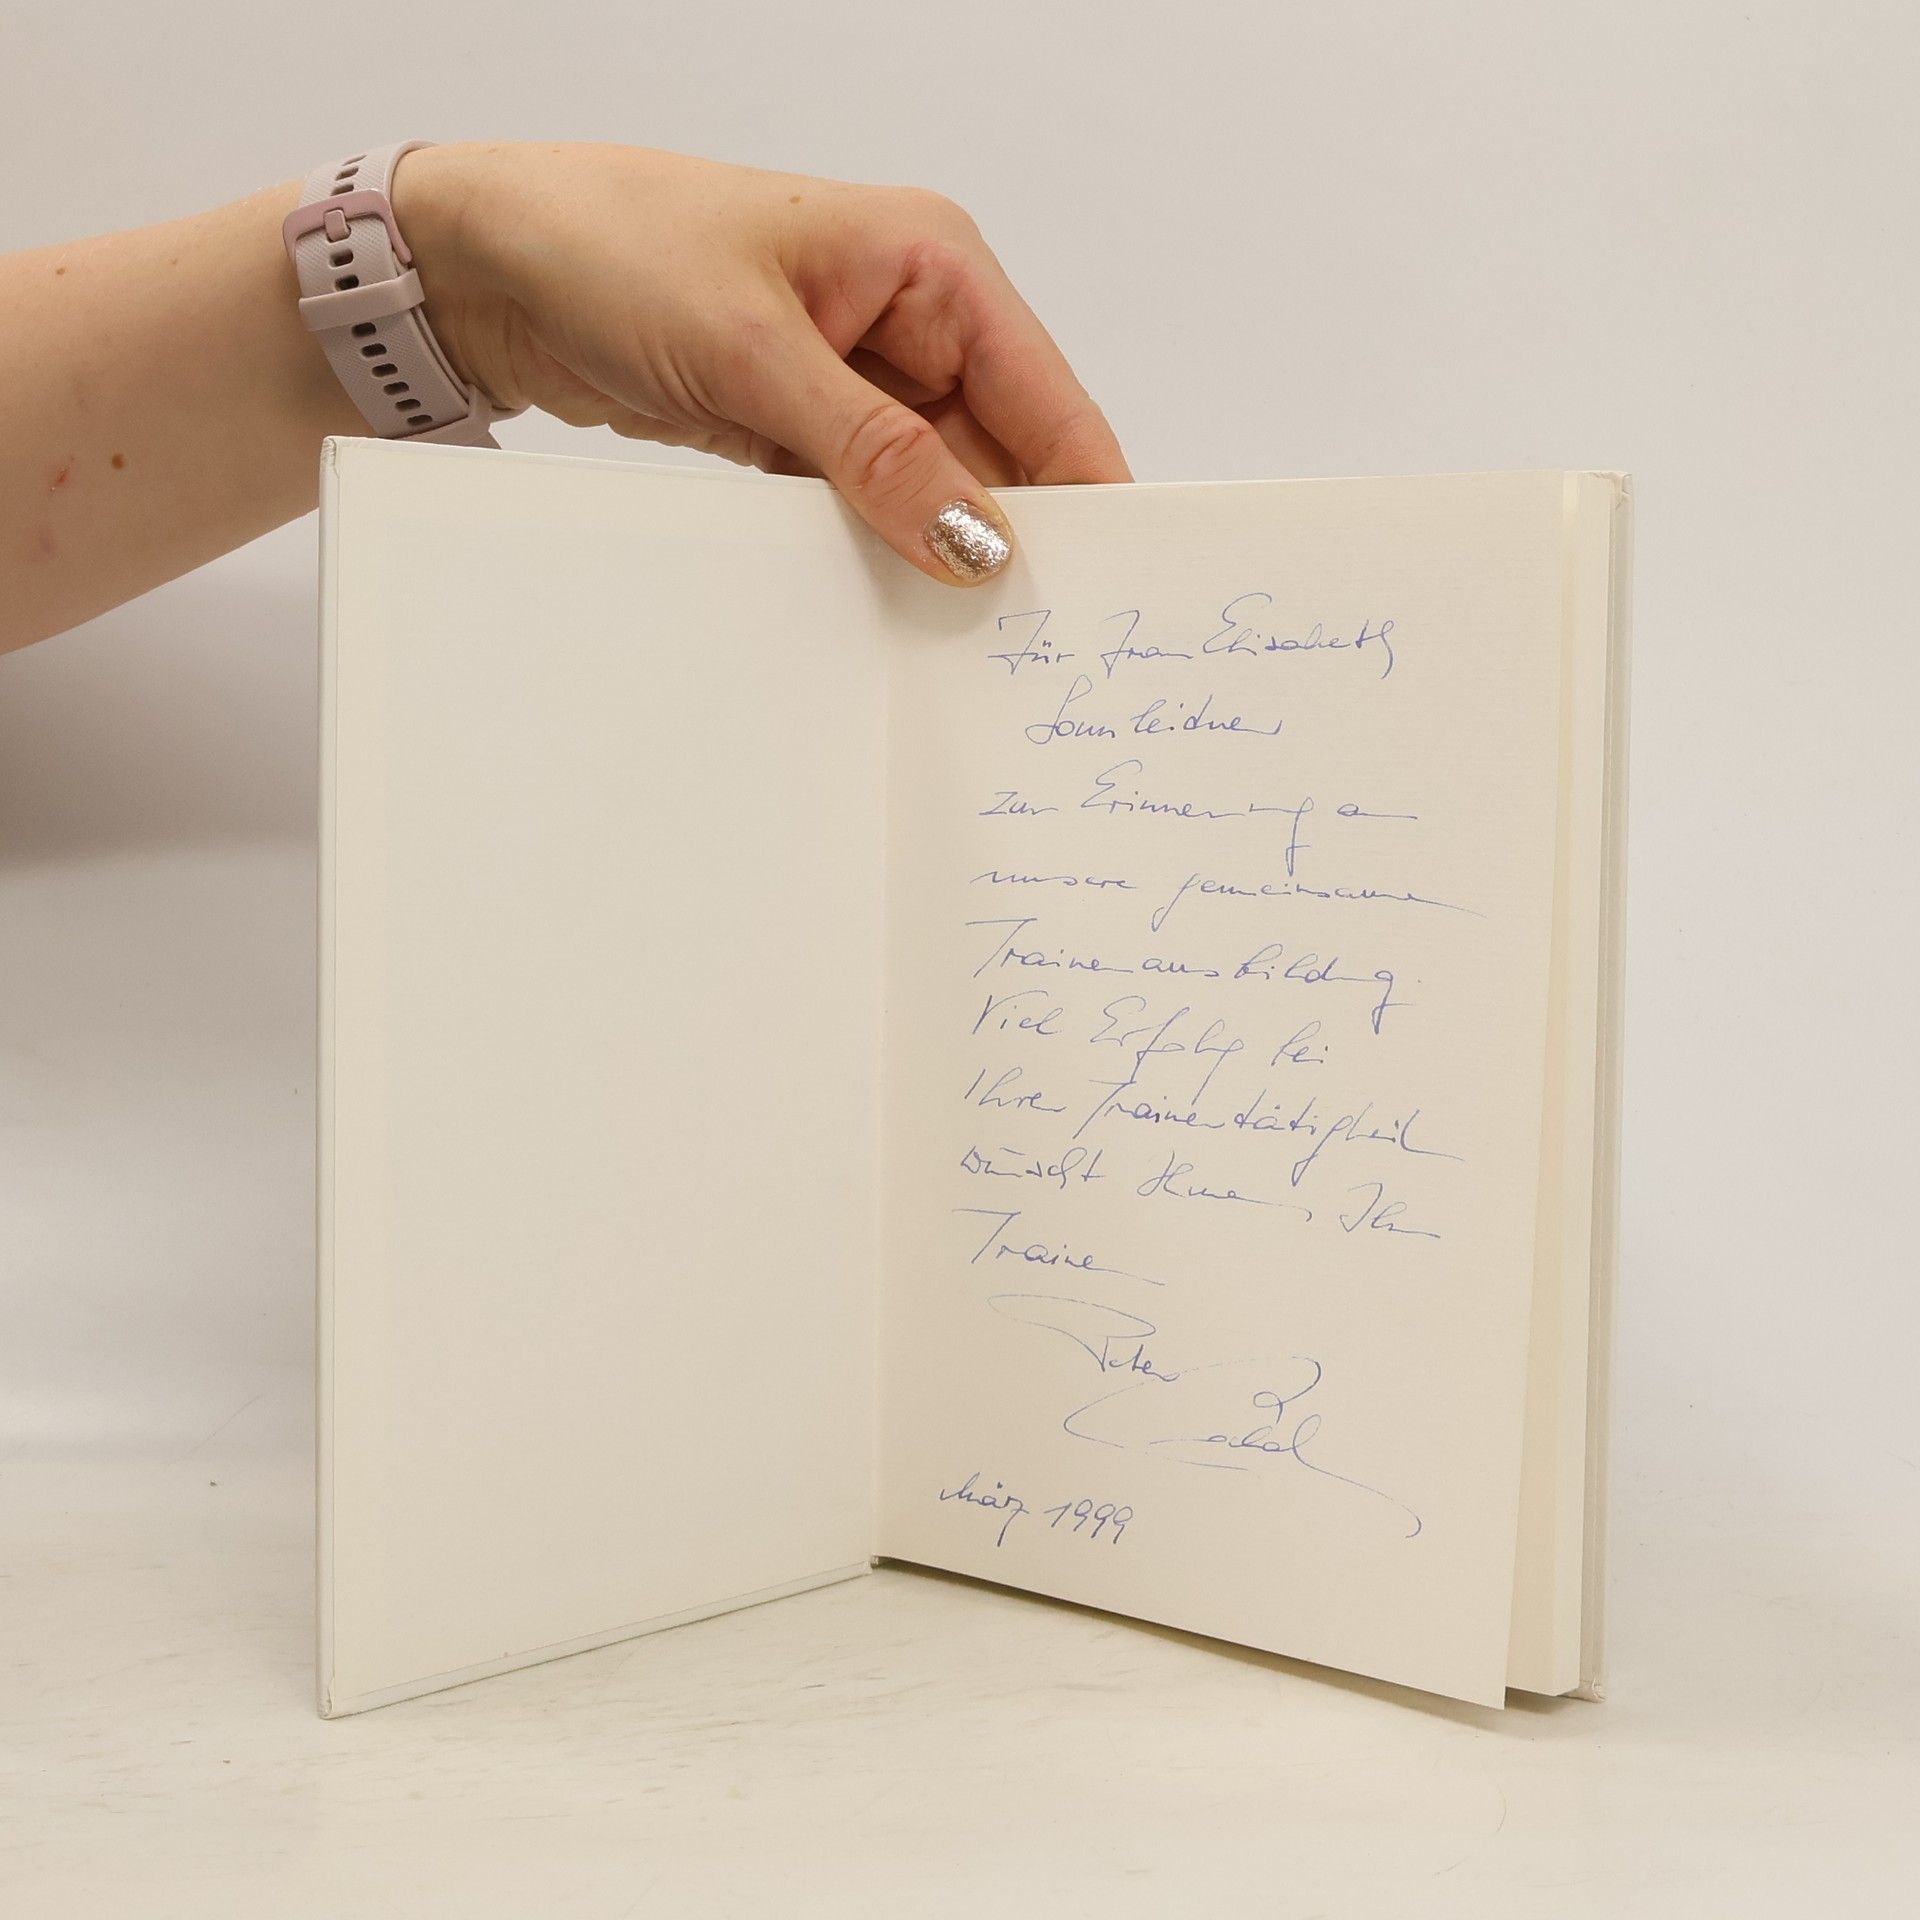 Für Frau Elisabeth
Sonnleitner
zur Erinnerung an
unsere gemeinsame
Trainerausbildung.
Viel Erfolg bei
Ihrer Trainertätigkeit
wünscht Ihnen, Ihr
Trainer
Peter
März 1999